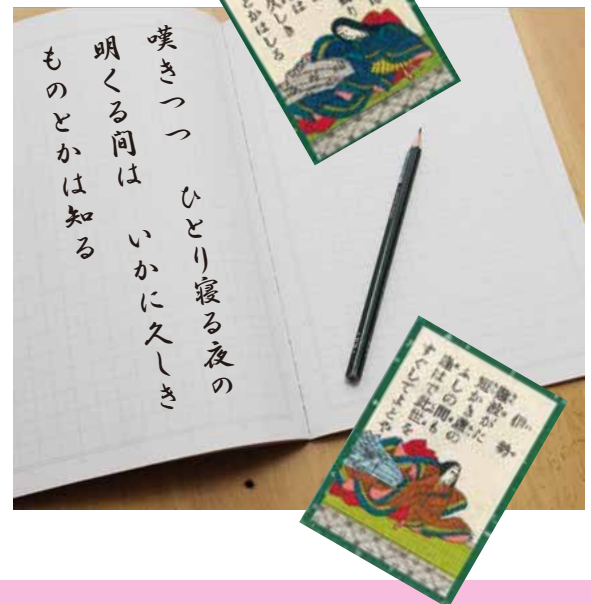 嘆きつつ　ひとり寝る夜の
明くる間は　いかに久しき
ものとかは知る
久しき
とかはしる
伊勢
難波がた
短かき蘆の
ふしの間も
逢はで此世を
すぐしてよとや